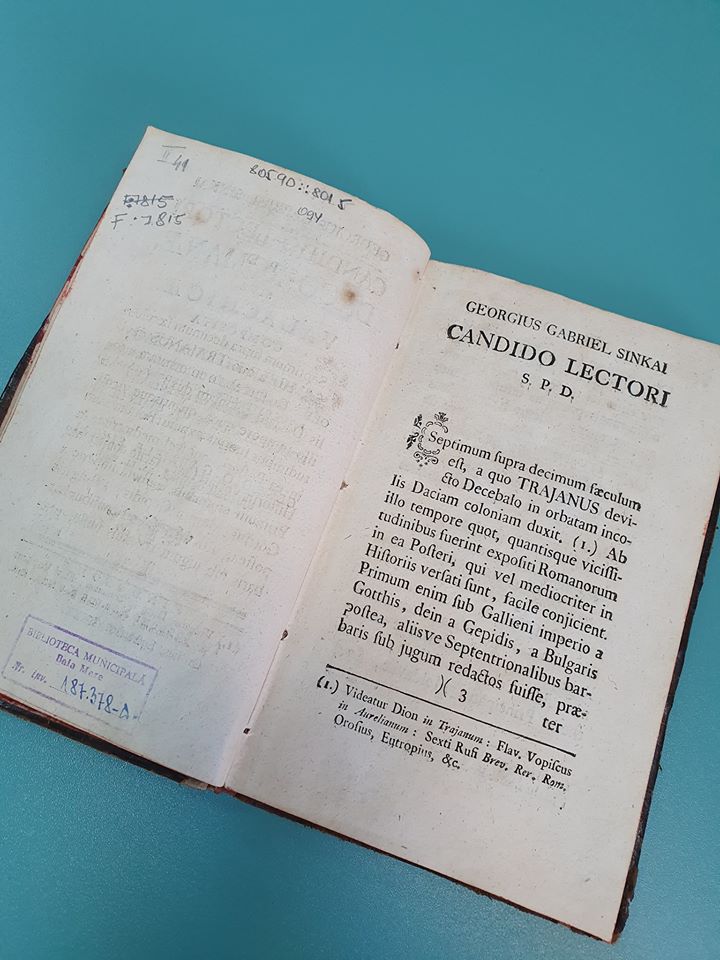 II 41
80590::8015
094
F.7815
F.7815
BIBLIOTECA MUNICIPALĂ
Baia Mare
Nr. inv. 187.378-D
GEORGIUS GABRIEL SINKAI
CANDIDO LECTORI
S. P. D.
Septimum ſupra decimum ſæculum
eſt, a quo TRAJANUS devi-
cto Decebalo in orbatam inco-
lis Daciam coloniam duxit. (1.) Ab
illo tempore quot, quantisque viciſſi-
tudinibus fuerint expoſiti Romanorum
in ea Poſteri, qui vel mediocriter in
Hiſtoriis verſati ſunt, facile conjicient.
Primum enim ſub Gallieni imperio a
Gotthis, dein a Gepidis, a Bulgaris
poſtea, aliisve Septentrionalibus bar-
baris ſub jugum redactos fuiſſe, præ-
)( 3 ter
(1.) Videatur Dion in Trajanum: Flav. Vopiſcus
in Aurelianum: Sexti Rufi Brev. Rer. Rom.
Oroſius, Eutropius, &c.